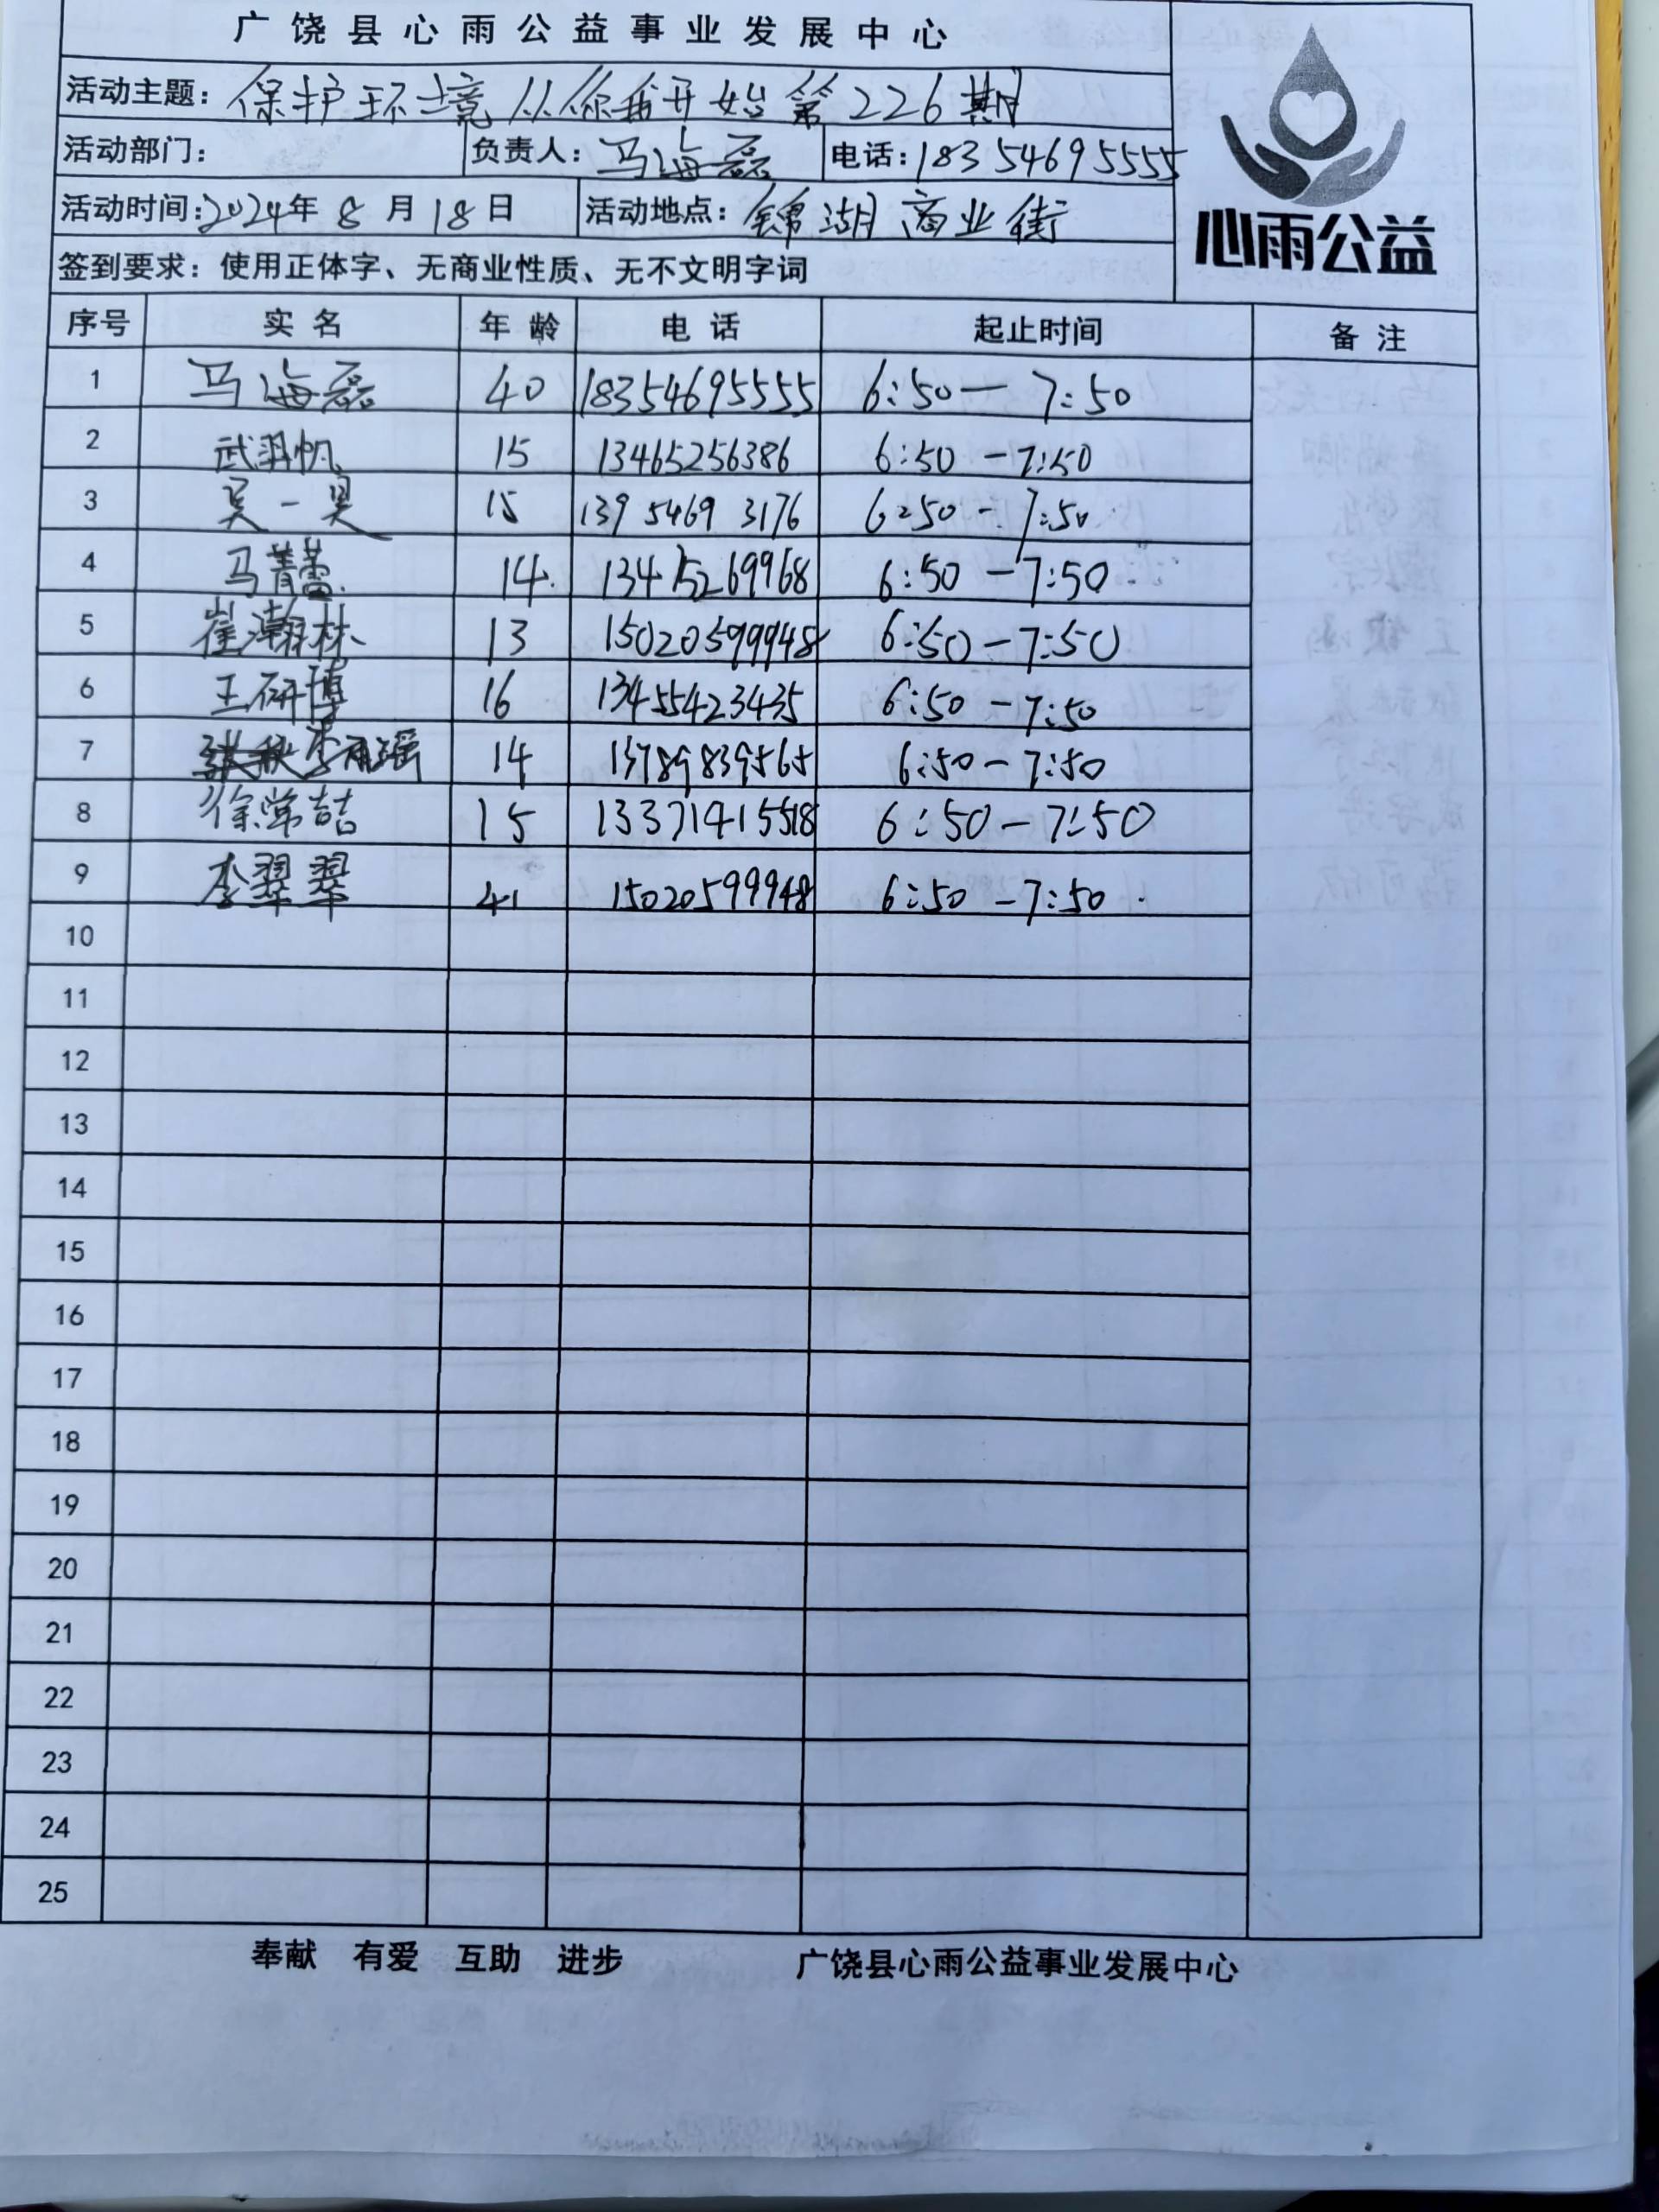 广饶县心雨公益事业发展中心
活动主题：保护环境从你我开始第226期
活动部门： 负责人：马海磊 电话：18354695555
活动时间：2024年8月18日 活动地点：锦湖商业街
签到要求：使用正体字、无商业性质、无不文明字词
心雨公益
序号 实名 年龄 电话 起止时间 备注
1 马海磊 40 18354695555 6:50—7:50
2 武羽帆 15 13465256386 6:50-7:50
3 吴一昊 15 139 5469 3176 6:50-7:50
4 马菁蕾 14 6:50-7:50
5 崔瀚林 13 15020599948 6:50-7:50
6 王研博 16 13455423435 6:50-7:50
7 李雨瑶 14 13789839565 6:50-7:50
8 徐常喆 15 6:50-7:50
9 李翠翠 41 15020599948 6:50-7:50
10
11
12
13
14
15
16
17
18
19
20
21
22
23
24
25
奉献 有爱 互助 进步 广饶县心雨公益事业发展中心